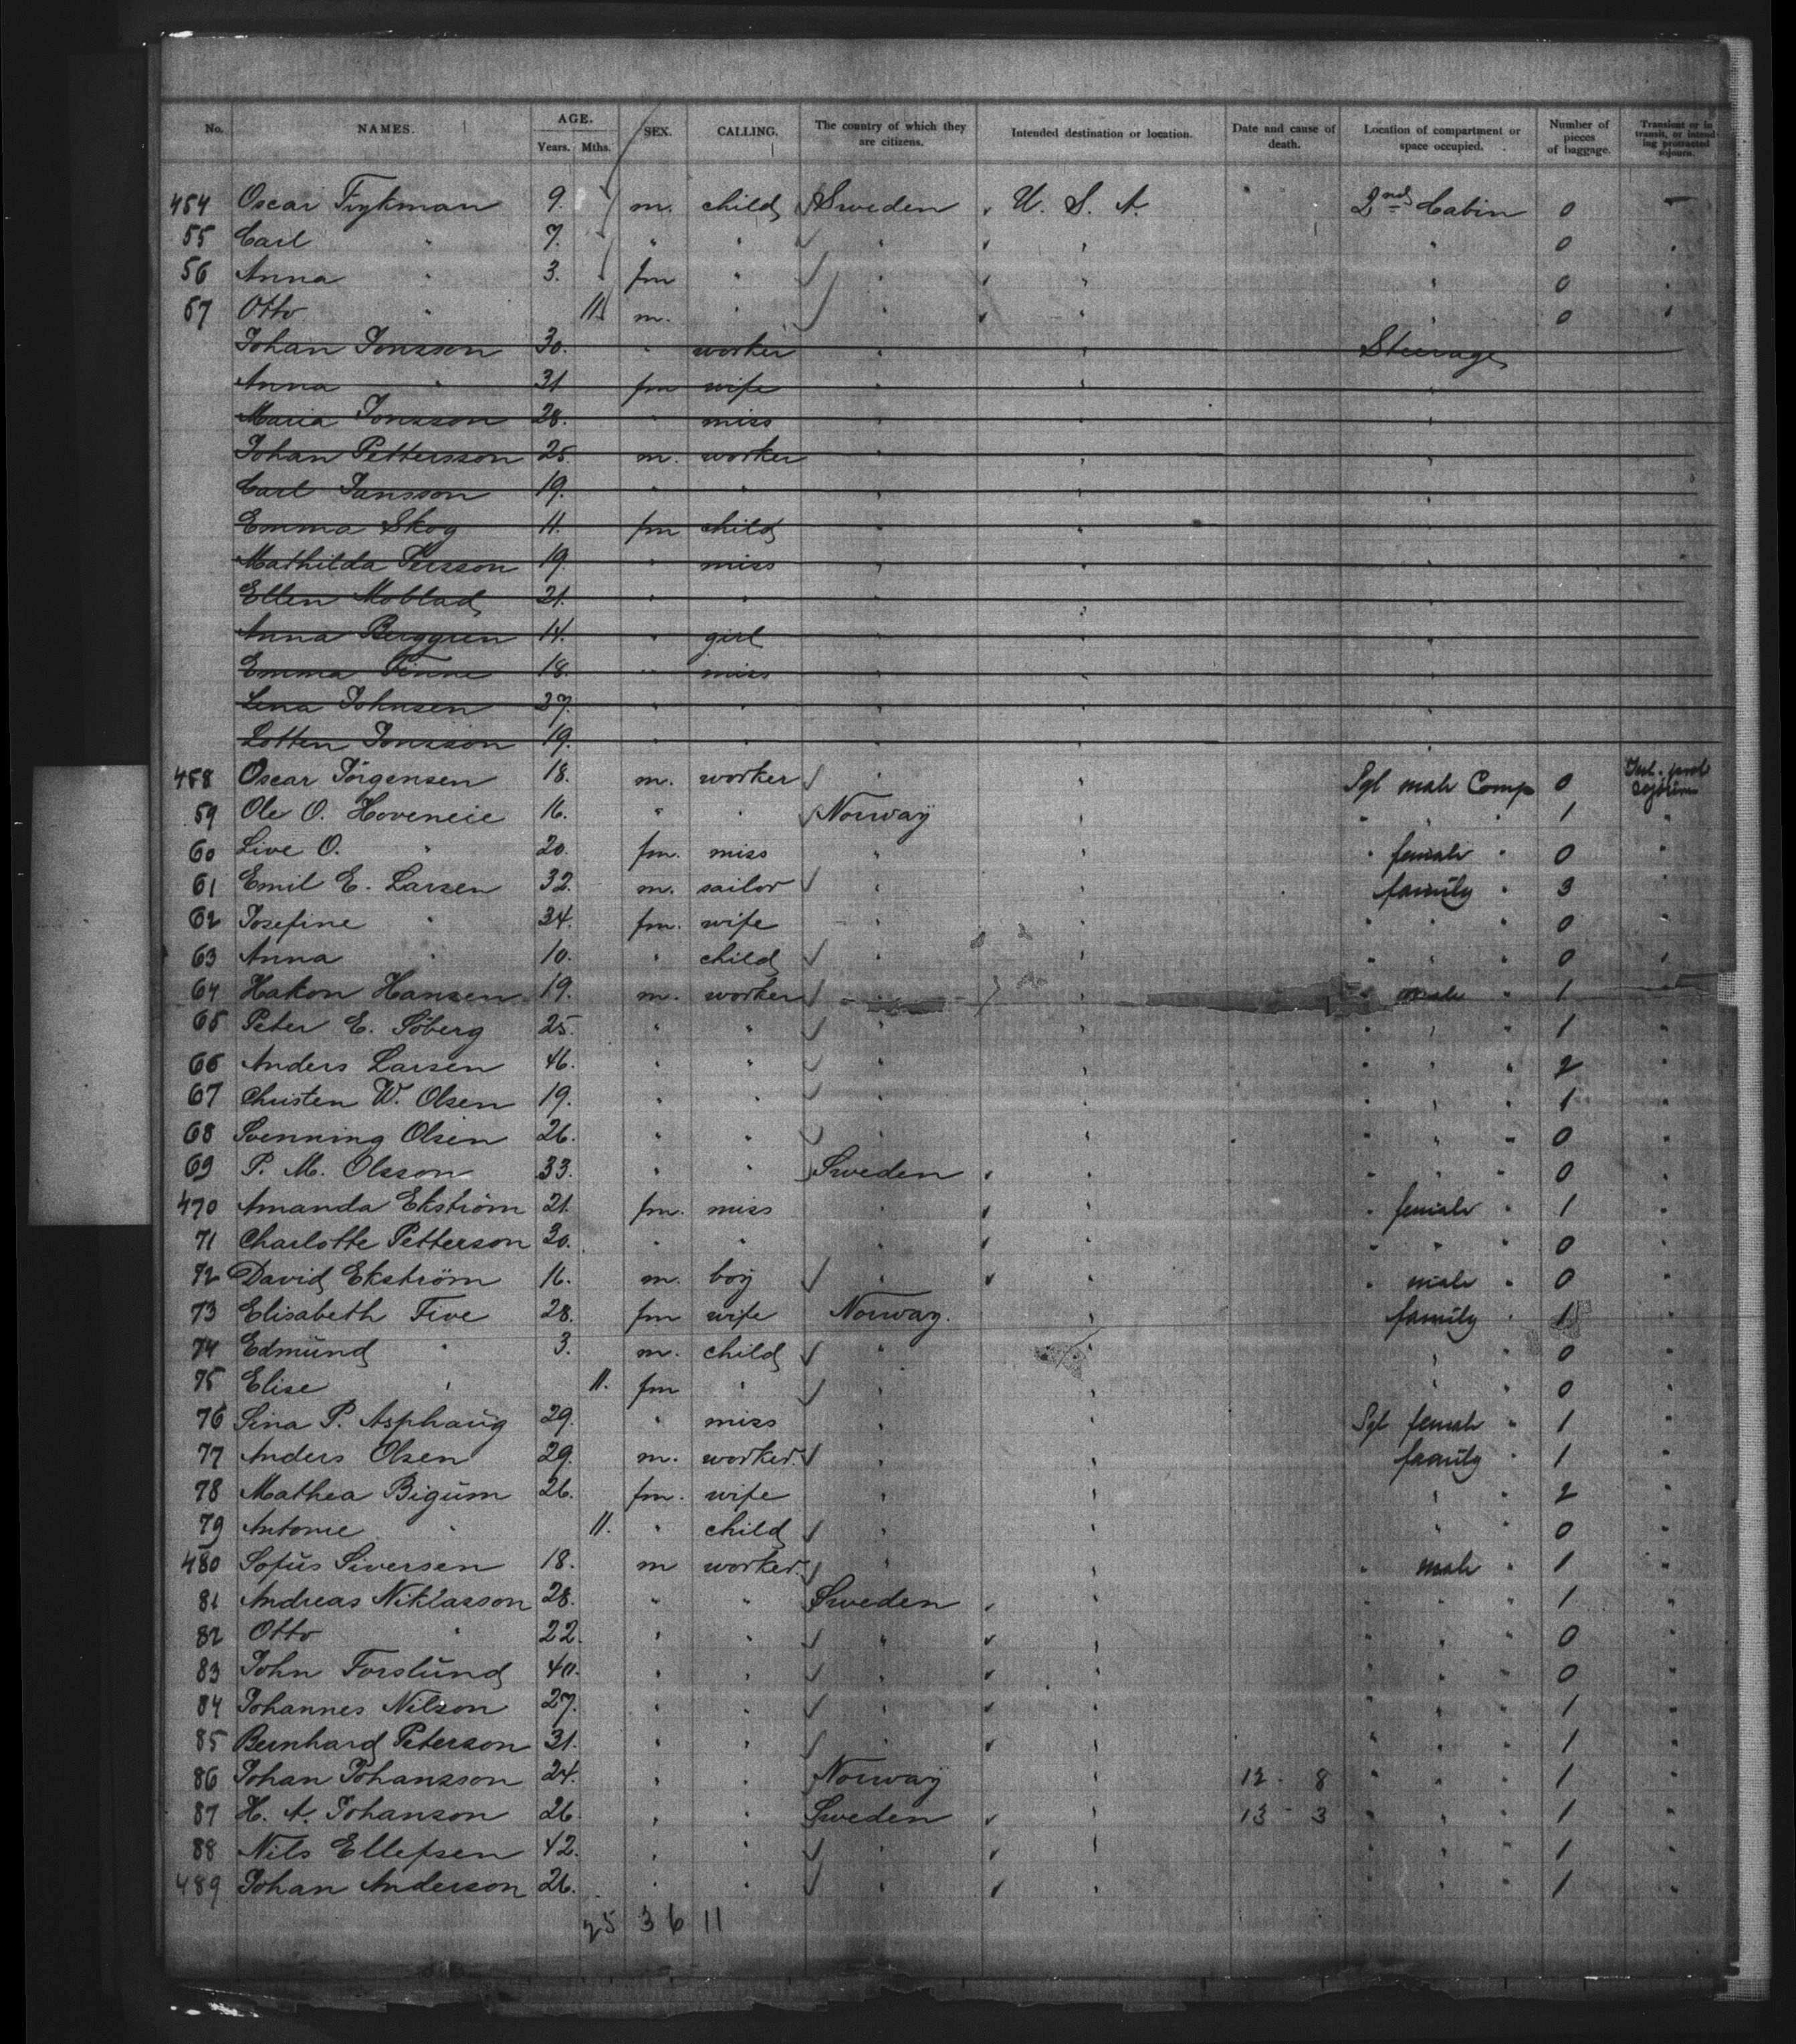 No. NAMES. AGE. Years. Mths. SEX. CALLING. The country of which they are citizens. Intended destination or location. Date and cause of death. Location of compartment or space occupied. Number of pieces of baggage. Transient or in transit, or intending protracted sojourn.
454 Oscar Frykman 9. m. child Sweden U. S. A. 2nd Cabin 0 -
55 Carl " 7. " " " " " 0 "
56 Anna " 3. fm " " " " 0 "
57 Otto " 11. m. " " " " 0 "
Johan Jonsson 30. " worker " " Steerage
Anna " 31 fm wife " " "
Maria Jonsson 28. " miss " " "
Johan Pettersson 25. m. worker " " "
Carl Jansson 19. " " " " "
Emma Skog 11. fm child " " "
Mathilda Persson 19. " miss " " "
Ellen Moblad 21. " " " " "
Anna Berggren 14. " girl " " "
Emma 18. " miss " " "
Lena Johnsen 27. " " " " "
Lotten Jonsson 19. " " " " "
458 Oscar Jörgensen 18. m. worker " " Sgl male Comp 0 Int. prot sojourn
59 Ole O. Hoveneie 16. " " Norway " " " " 1 "
60 Live O. " 20. fm. miss " " " female " 0 "
61 Emil E. Larsen 32. m. sailor " " family " 3 "
62 Josefine " 34. fm. wife " " " " " 0 "
63 Anna " 10. " child " " " " " 0 "
64 Hakon Hansen 19. m. worker " " " male " 1 "
65 Peter E. Söberg 25. " " " " " " " 1 "
66 Anders Larsen 46. " " " " " " 2 "
67 Christen W. Olsen 19. " " " " " " " 1 "
68 Svenning Olsen 26. " " " " " " " 0 "
69 P. M. Olsson 33. " " Sweden " " " " 0 "
470 Amanda Ekström 21. fm. miss " " " female " 1 "
71 Charlotte Petterson 30. " " " " " " " 0 "
72 David Ekström 16. m. boy " " " male " 0 "
73 Elisabeth Five 28. fm wife Norway. " family " 1 "
74 Edmund " 3. m. child " " " " 0 "
75 Elise " 11. fm " " " " " 0 "
76 Sina P. Asphaug 29. " miss " " Sgl female " 1 "
77 Anders Olsen 29. m. worker. " " family " 1 "
78 Mathea Bigum 26. fm. wife " " " " 2 "
79 Antonie " 11. " child " " " " 0 "
480 Sofus Siversen 18. m worker. " " " male " 1 "
81 Andreas Niklasson 28. " " Sweden " " " " 1 "
82 Otto " 22. " " " " " " " 0 "
83 John Forslund 40. " " " " " " " 0 "
84 Johannes Nilson 27. " " " " " " " 1 "
85 Bernhard Peterson 31. " " " " " " " 1 "
86 Johan Johansson 24. " " Norway " 12 - 8 " " " 1 "
87 H. A. Johanson 26. " " Sweden " 13 - 3 " " " 1 "
88 Nils Ellefsen 42. " " " " " " " 1 "
489 Johan Anderson 26. " " " " " " " 1 "
25 36 11